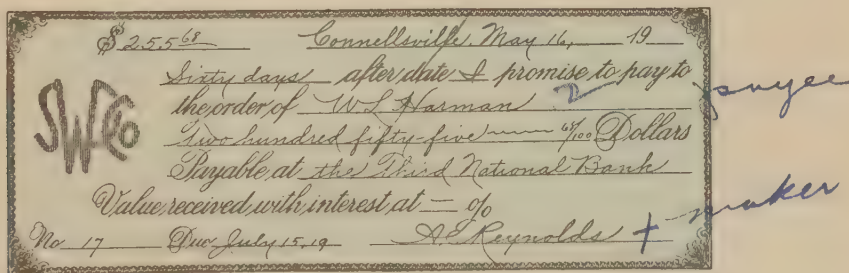 $255 68/100 Connellsville, May 16, 19
Sixty days after date I promise to pay to
the order of W L Harman payee
SWCo
two hundred fifty-five 68/100 Dollars
Payable at the Third National Bank
Value received with interest at — %
maker
No 17 Due July 15, 19 A E Reynolds